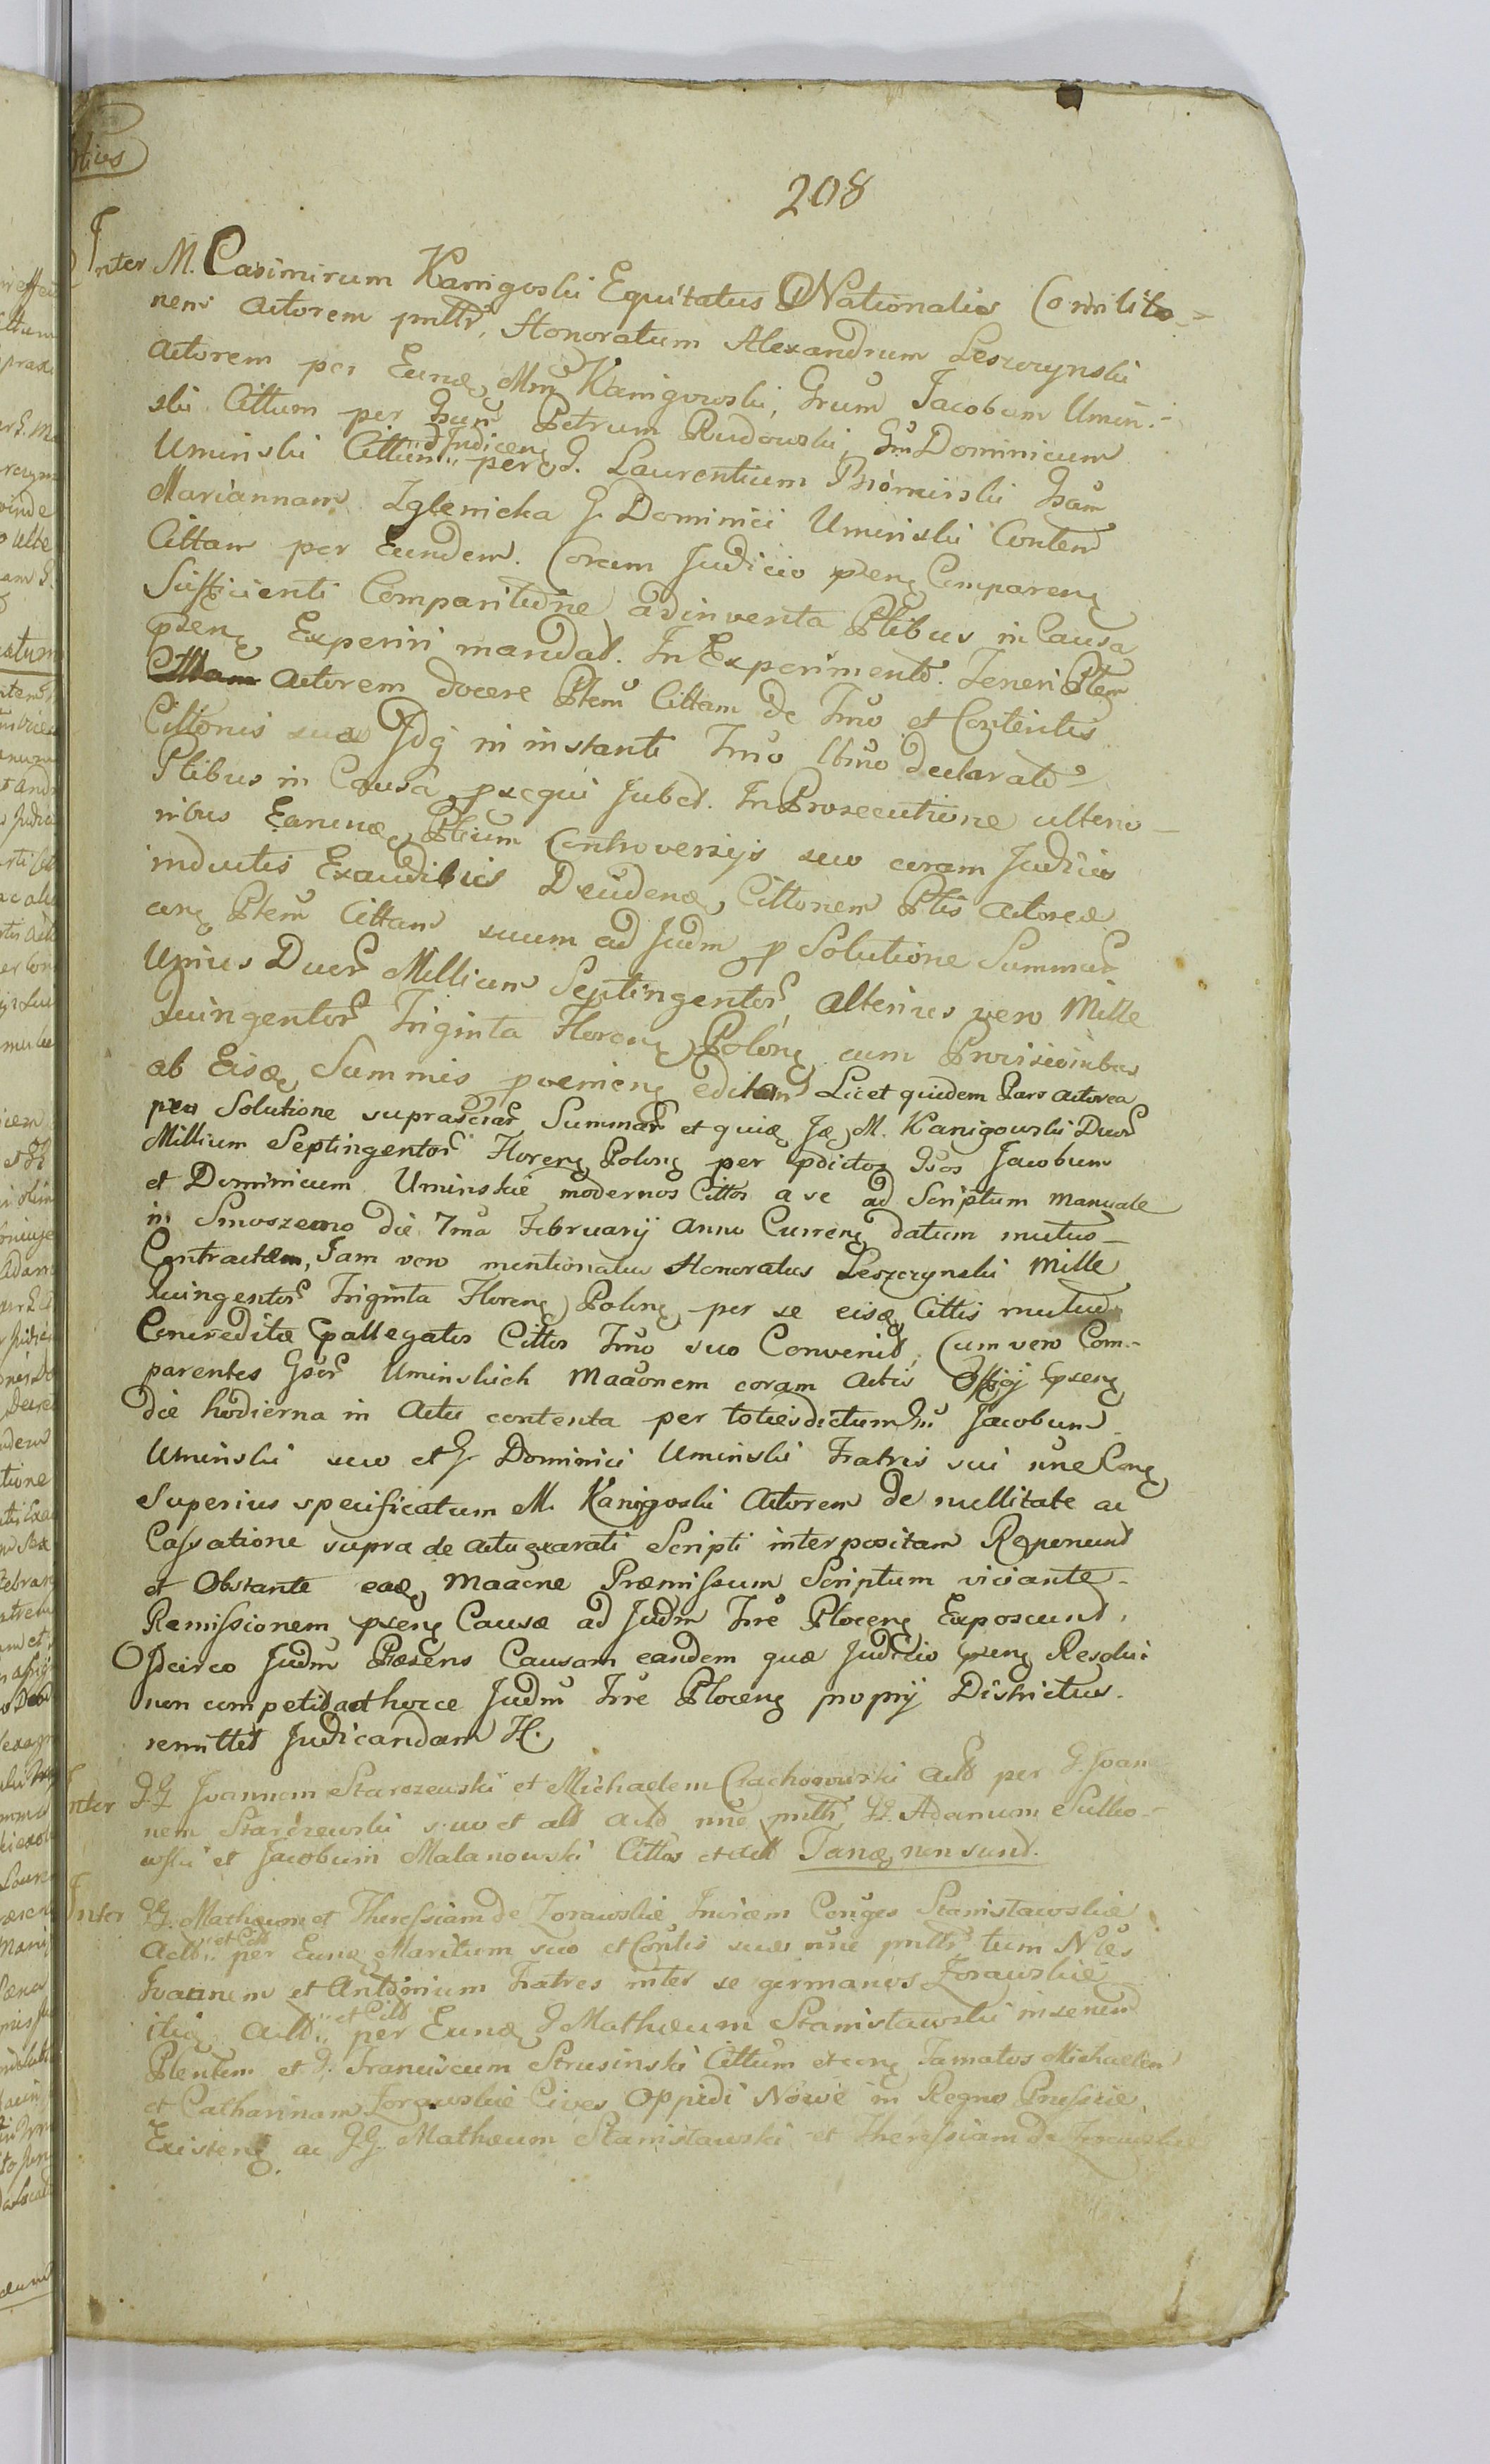 208
Inter M. Casimirum Kanigoski Equitatus Nationalis Comilito-
nem Actorem pnttr, Honoratum Alexandrum Leszczynski
Actorem per Eundq Mm Kanigowski, Grum Jacobum Umin-
ski Cittum per Gsum Petrum Rudowski, Gm Dominicum
Uminski Cittum per G. Laurentium Gsam
Mariannam Zglenicka G. Dominici Uminski Contem
Cittam per Eundem. Coram Judicio psenq Comparenq
Sufficienti Comparitione adinventa Ptibus in Causa
psenq Experiri mandat. In Experimento. Teneri Ptem
Actorem docere Ptem Cittam de Tno et Contentis
Cittonis suae Jdq in instanti Tno declarato
Ptibus in Causa pxequi Jubet. In Prosecutione ulterio-
ribus Earunq Ptium Controversijs suo coram Judicio
inductis Exauditis Deudenq, Cittonem Ptis Actoreae
cenq Ptem Cittam suum ad Judm p Solutione Summar
Unius Duor Millium Septingentor, alterius vero Mille
Quingentor Triginta Florenq Polonq cum Provisionibus
ab Eisq Summis poenienq editam Licet quidem Pars Actorea
pro Solutione suprascrar Summar et quidq Jq M. Kanigowski Duor
Millium Septingentor Florenq Polonq per pdictos Gsos Jacobum
et Dominicum Uminskie modernos Cittos a se ad Scriptum manuale
in Smoszewo die 7ma Februarij Anno Currenq datum mutuo-
Contractam, Jam vero mentionatus Honoratus Leszczynski Mille
Quingentor Triginta Florenq Polonq per se eisq Cittis mutuo
Concreditae pallegatos Cittos Tno suo Convenit, Cum vero Com-
parentes Gsor Uminskich Maaonem coram Actis Offcij psenq
die hodierna in Actu contenta per totiesdictum Gm Jacobum
Uminski suo et G. Dominici Uminski Fratris sui nne Conq
Superius specificatum M. Kanigoski Actorem de nullitate ac
Cassatione supra de actu exarati Scripti interpositam Reponunt
et Obstante eadq Maaone Praemissum Scriptum viciante-
Remissionem psenq Causae ad Judm Trre Plocenq Exposcunt,
Idcirco Judm Praesens Causam eandem quae Judicio psenq Resolvi
non competit ad hocce Judm Trre Plocenq proprij Districtus-
remittet Judicandam H.
Inter GG Joannem Starozewski et Michaelem Czachorowski Actt per G. Joan-
nem Starczewski suo et alt Actt nne pnttr, GG. Adamum Sulko-
wski et Jacobum Malanowski Cittos et Actt Tanq non sunt.
Inter GG. Mathaeum et Theressiam de Zorawskie Invicem Conges Stanisławskie
Actt et Citt per Eunq Maritum suo et Contis suae nne pnttr, tum Nles
Joannem et Antonium Fratres inter se germanos Zorawskie
itiq Actt et Citt per Eunq G Mathaeum Stanisławski
Ptentem et G. Franciscum Strusinski Cittum etcenq Famatos Michaelem
et Catharinam Zorawskie Cives Oppidi Nowe in Regno Prussiae
Existenq ac GG. Mathaeum Stanisławski et Theressiam de Zorawskie